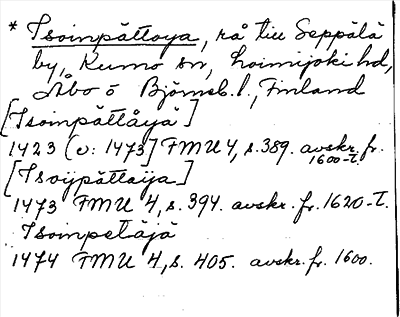 * Isoinpättoya, rå till Seppälä
by, Kumo sn, Loimijoki hd,
Åbo o Björneb. l., Finland
[Isoinpättäyä]
1423 (o: 1473] FMU 4, s. 389. avskr. fr.
1600-t.
[Isoijpättäija]
1473 FMU 4, s. 394. avskr. fr. 1620-t.
Isoinpetäjä
1474 FMU 4, s. 405. avskr. fr. 1600.